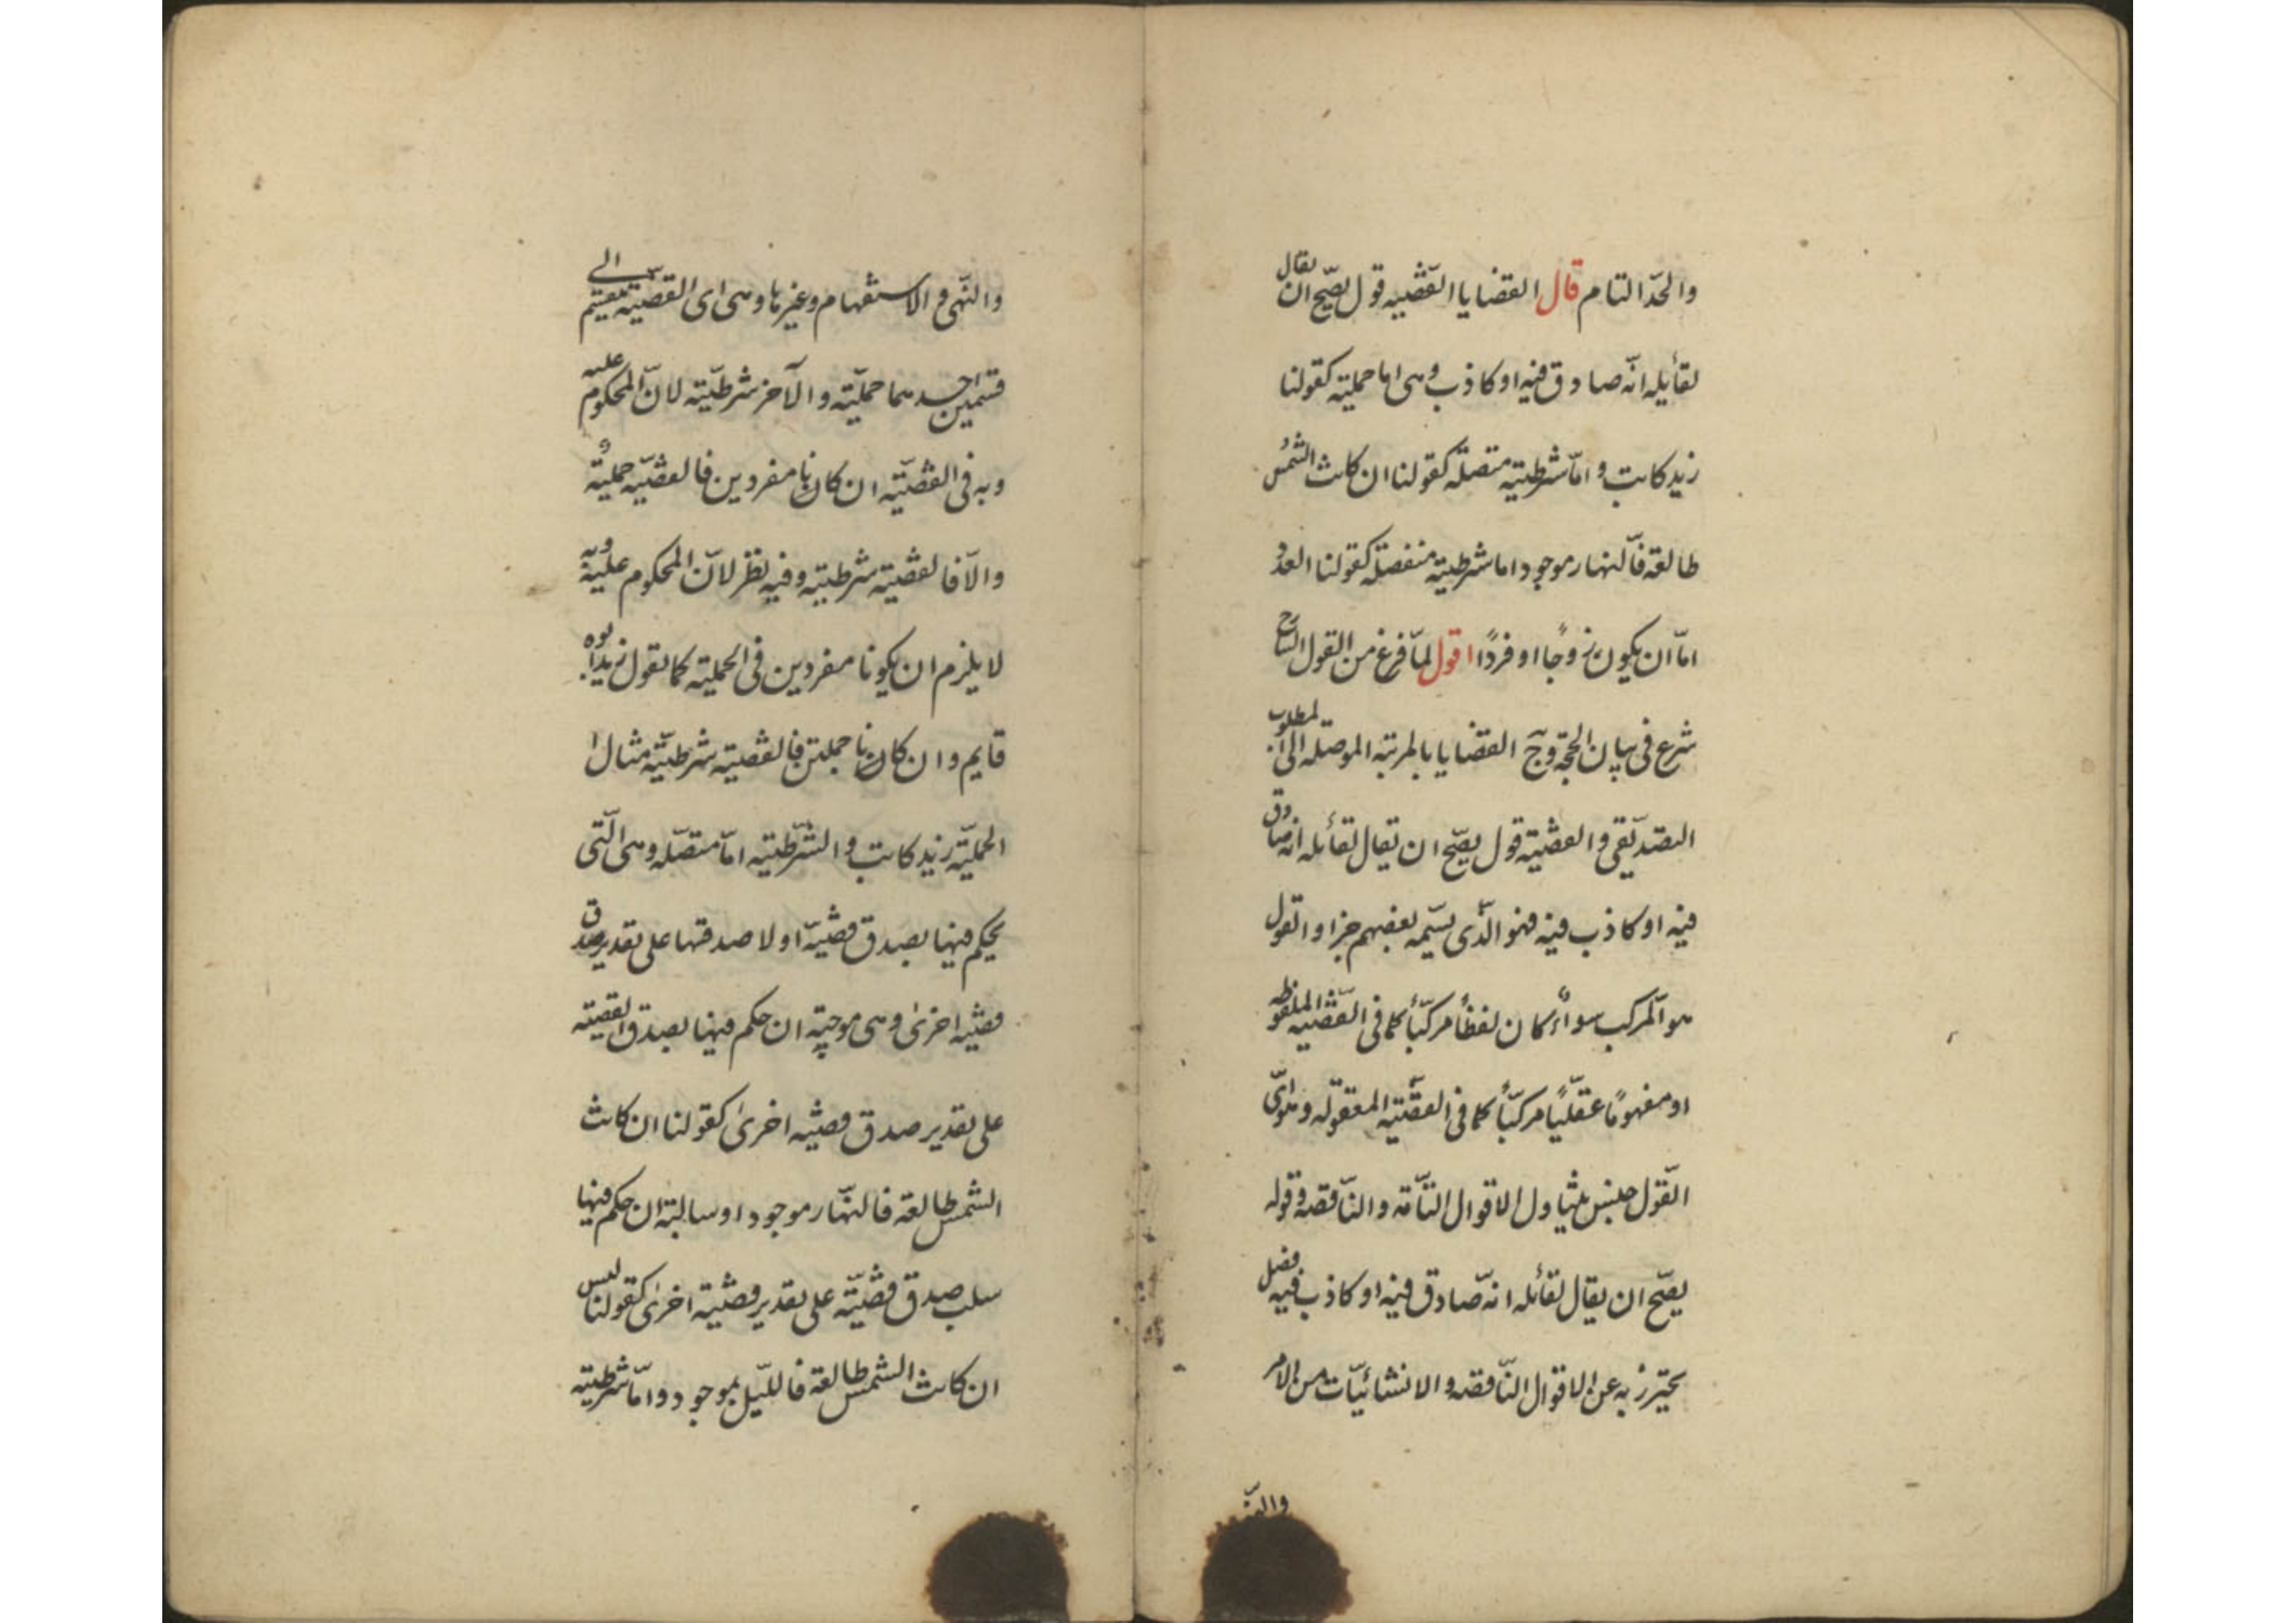 والحدّ التام قال القضايا القضيه قول يصحّ ان يقال
لقائله انّه صادق فيه او كاذب وهى اما حملية كقولنا
زيد كاتب و امّا شرطية متصلة كقولنا ان كانت الشمس
طالعة فالنهار موجود اما شرطية منفصلة كقولنا العدد
امّا ان يكون زوجًا او فردًا اقول لمّا فرغ من القول الشارح
شرع فى بيان الحجّة و القضايا الموصلة الى المطلوب
التصديقى و القضية قول يصحّ ان يقال لقائله انه صادق
فيه او كاذب فيه فهو الّذى يسمّيه بعضهم خبرا و القول
هو المركب سواءً كان لفظاً مركّباً كما فى القضّيه الملفوظه
او مفهومًا عقليّاً مركبّاً كما فى القضّية المعقوله
القول جنس يتناول الاقوال التّامّة و النّاقصة وقوله
يصحّ ان يقال لقائله انّه صادق فيه او كاذب فيه فصل
يحترز به عن الاقوال النّاقصه و الانشائيّات من الامر
والنّهى
والنّهى و الاستفهام و غيرها وهى اى القضيّة تنقسم الى
قسمين احدهما حمليّة و الآخر شرطيّة لانّ المحكوم عليه
و به فى القضيّة ان كانا مفردين فالقضيّه حمليّة
و الّا فالقضية شرطية و فيه نظر لانّ المحكوم عليه و به
لا يلزم ان يكونا مفردين فى الحملية كما تقول زيد ابوه
قايم و ان كانا جملتين فالقضية شرطيّة مثال ا
لحمليّة زيد كاتب و الشرّطية امّا متصّله وهى الّتى
يحكم فيها بصدق قضيّة او لا صدقها على تقدير صدق
قضيّه اخرىٰ وهى موجبة ان حكم فيها بصدق القضية
على تقدير صدق قضيّه اخرىٰ كقولنا ان كانت
الشمس طالعة فالنهّار موجود او سالبة ان حكم فيها
سلب صدق قضيّة على تقدير قضيّة اخرىٰ كقولنا ليس
ان كانت الشمس طالعة فالليّل بموجود و امّا شرطية